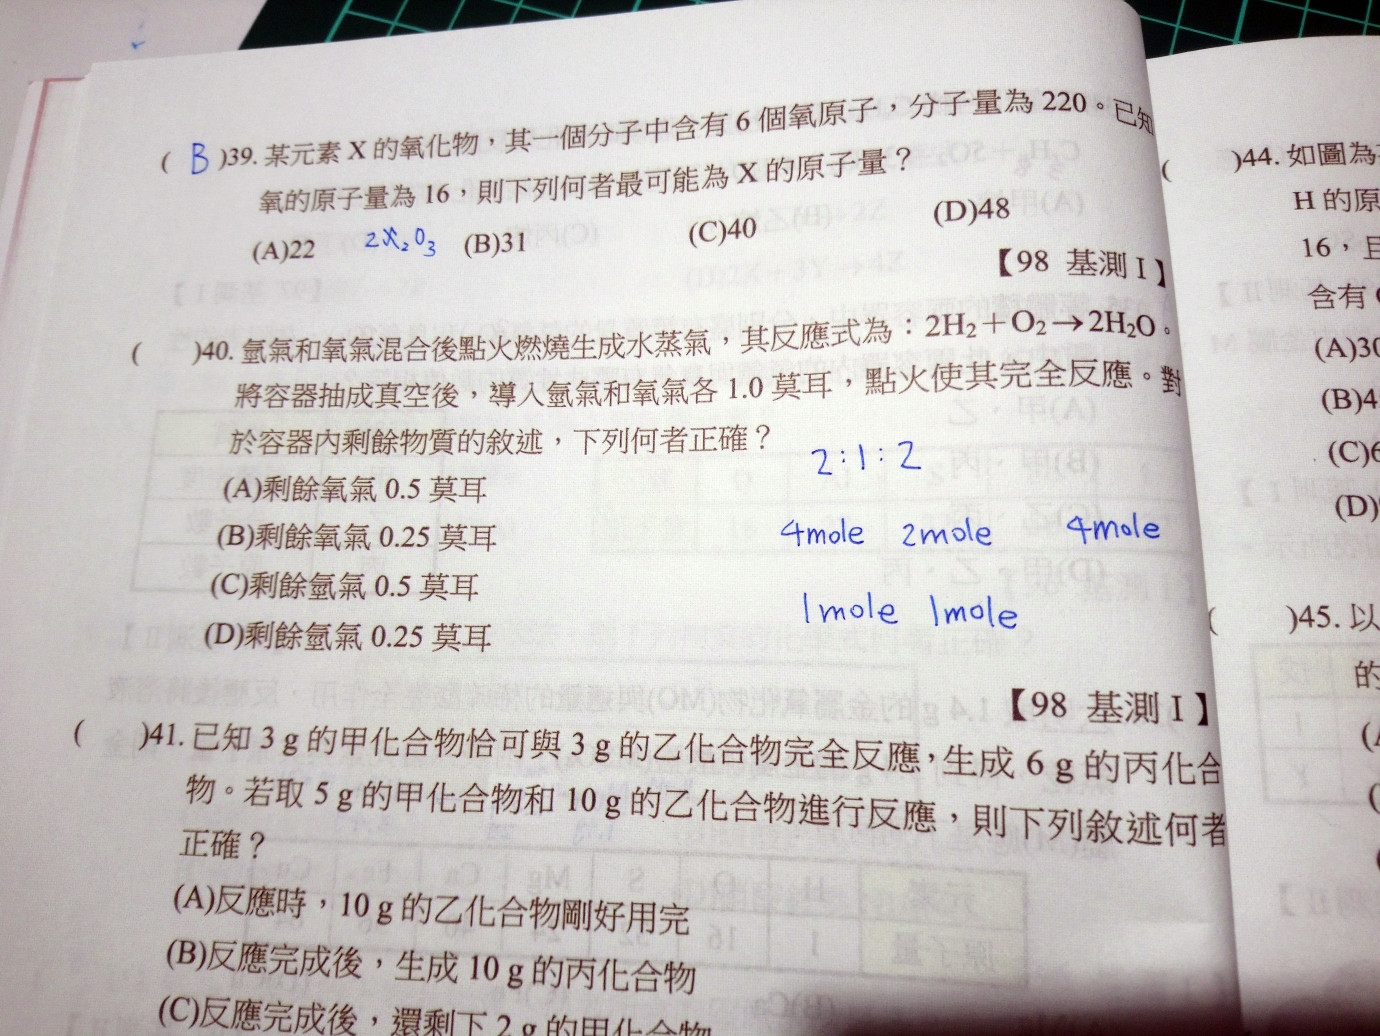 ( B )39. 某元素 X 的氧化物，其一個分子中含有 6 個氧原子，分子量為 220。已知
氧的原子量為 16，則下列何者最可能為 X 的原子量？
(A)22 2X₂O₃ (B)31 (C)40 (D)48
【98 基測 I】
( )40. 氫氣和氧氣混合後點火燃燒生成水蒸氣，其反應式為：2H₂＋O₂→2H₂O。
將容器抽成真空後，導入氫氣和氧氣各 1.0 莫耳，點火使其完全反應。對
於容器內剩餘物質的敘述，下列何者正確？
2:1:2
(A)剩餘氧氣 0.5 莫耳
(B)剩餘氧氣 0.25 莫耳
4mole 2mole 4mole
(C)剩餘氫氣 0.5 莫耳
1mole 1mole
(D)剩餘氫氣 0.25 莫耳
【98 基測 I】
( )41. 已知 3 g 的甲化合物恰可與 3 g 的乙化合物完全反應，生成 6 g 的丙化合
物。若取 5 g 的甲化合物和 10 g 的乙化合物進行反應，則下列敘述何者
正確？
(A)反應時，10 g 的乙化合物剛好用完
(B)反應完成後，生成 10 g 的丙化合物
(C)反應完成後，還剩下 2 g 的甲化合物
( )44. 如圖為
H 的原
16，且
含有
(A)30
(B)4
(C)6
(D)
( )45. 以
的